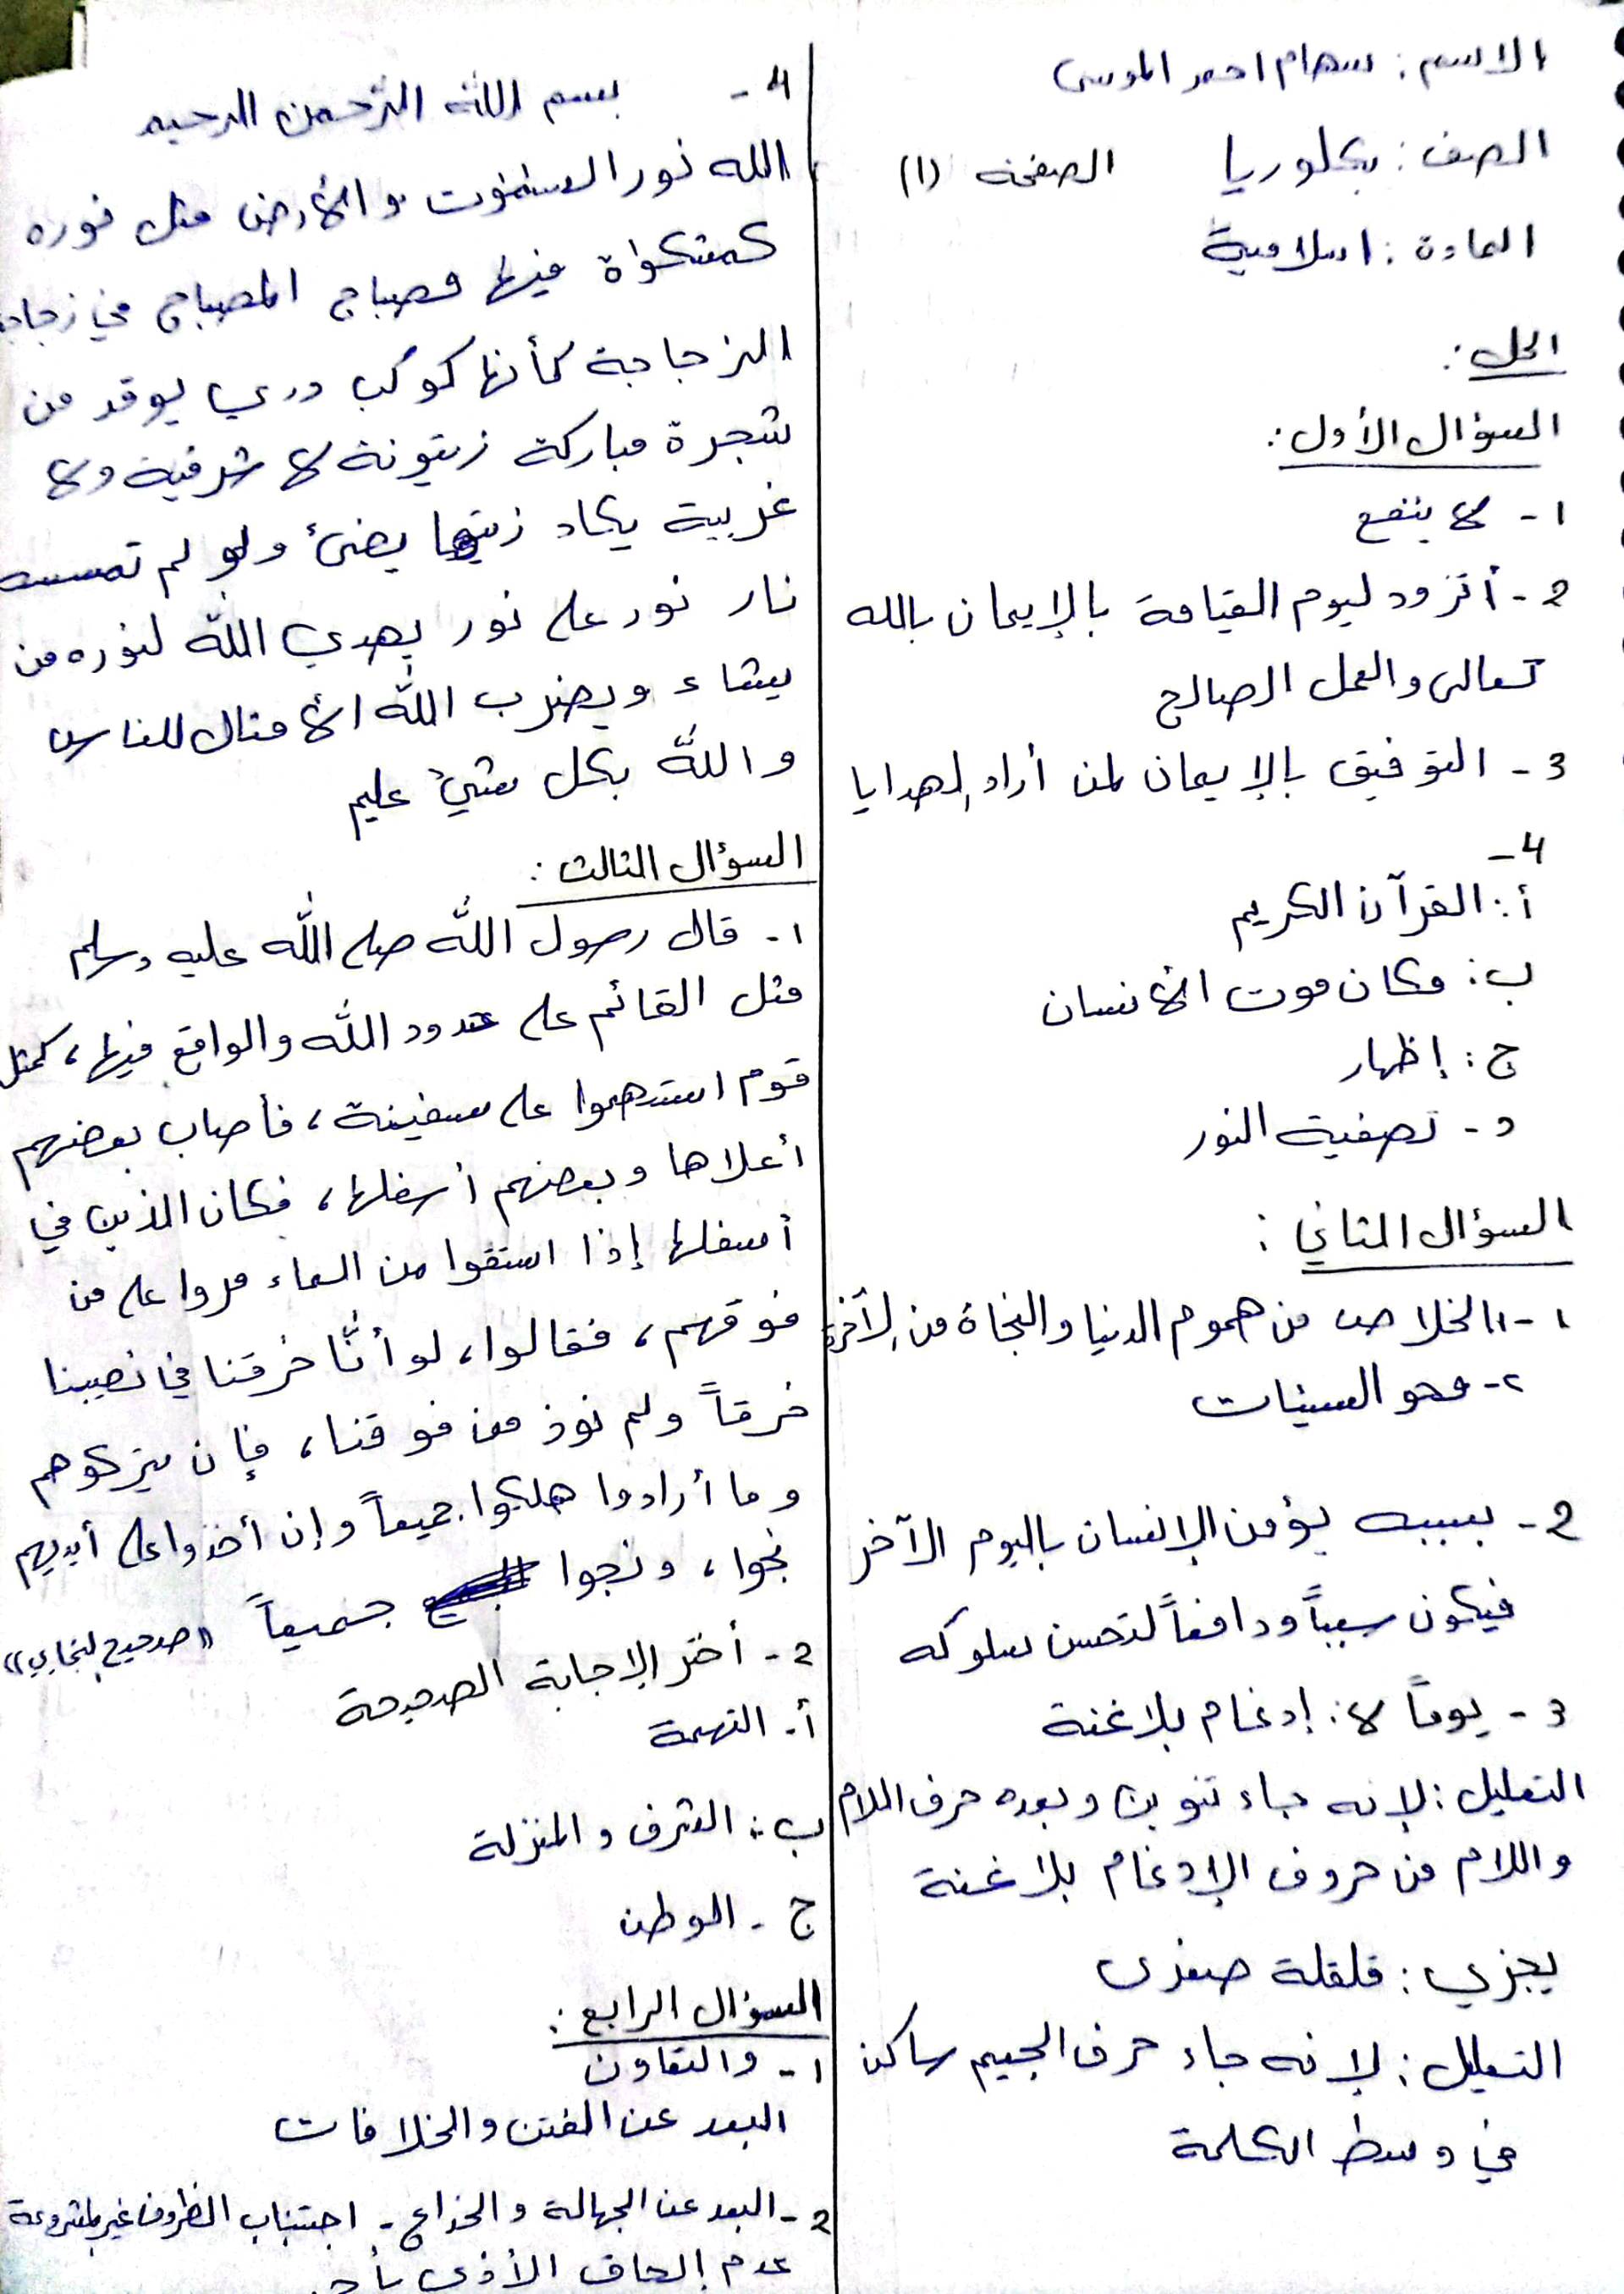 الاسم: سهام احمد الموسى
الصف: بكلوريا الصفحة (1)
المادة: اسلامية
الحل:
السؤال الأول:
1- لا ينفع
2- أتزود ليوم القيامة بالإيمان بالله
تعالى والعمل الصالح
3- التوفيق بالإيمان لمن أراد الهدايا
4-
أ: القرآن الكريم
ب: مكان موت الأنسان
ج: إظهار
د- تصفية النور
السؤال الثاني:
1- 1- الخلاص من هموم الدنيا والنجاة من الآخرة
2- محو السيئات
2- بسببه يؤمن الإنسان باليوم الآخر
فيكون سبباً ودافعاً لتحسن سلوكه
3- يوماً لا: إدغام بلا غنة
التعليل: لانه جاء تنوين وبعده حرف اللام
واللام من حروف الإدغام بلا غنة
يجزي: قلقلة صغرى
التعليل: لانه جاء حرف الجيم ساكن
في وسط الكلمة
4- بسم الله الرحمن الرحيم
الله نور السمٰوٰت والأرض مثل نوره
كمشكواة فيها مصباح المصباح في زجاجة
الزجاجة كأنها كوكب دري يوقد من
شجرة مباركة زيتونة لا شرقية ولا
غربية يكاد زيتها يضئ ولو لم تمسسه
نار نور على نور يهدي الله لنوره من
يشاء ويضرب الله الأمثال للناس
والله بكل شيئ عليم
السؤال الثالث:
1- قال رسول الله صلى الله عليه وسلم
مثل القائم على حدود الله والواقع فيها، كمثل
قوم استهموا على سفينة، فأصاب بعضهم
أعلاها وبعضهم أسفلها، فكان الذين في
أسفلها إذا استقوا من الماء مروا على من
فوقهم، فقالوا، لو أنّا خرقنا في نصيبنا
خرقاً ولم نوذ من فوقنا، فإن يتركوهم
وما أرادوا هلكوا جميعاً وإن أخذوا على أيديهم
نجوا، ونجوا جميعاً ((صحيح البخاري))
2- أختر الإجابة الصحيحة
أ- التهمة
ب: الشرف والمنزلة
ج- الوطن
السؤال الرابع:
1- والتعاون
البعد عن الفتن والخلافات
2- البعد عن الجهالة والخداع- اجتناب الظروف غير المشروعة
عدم إلحاق الأذى